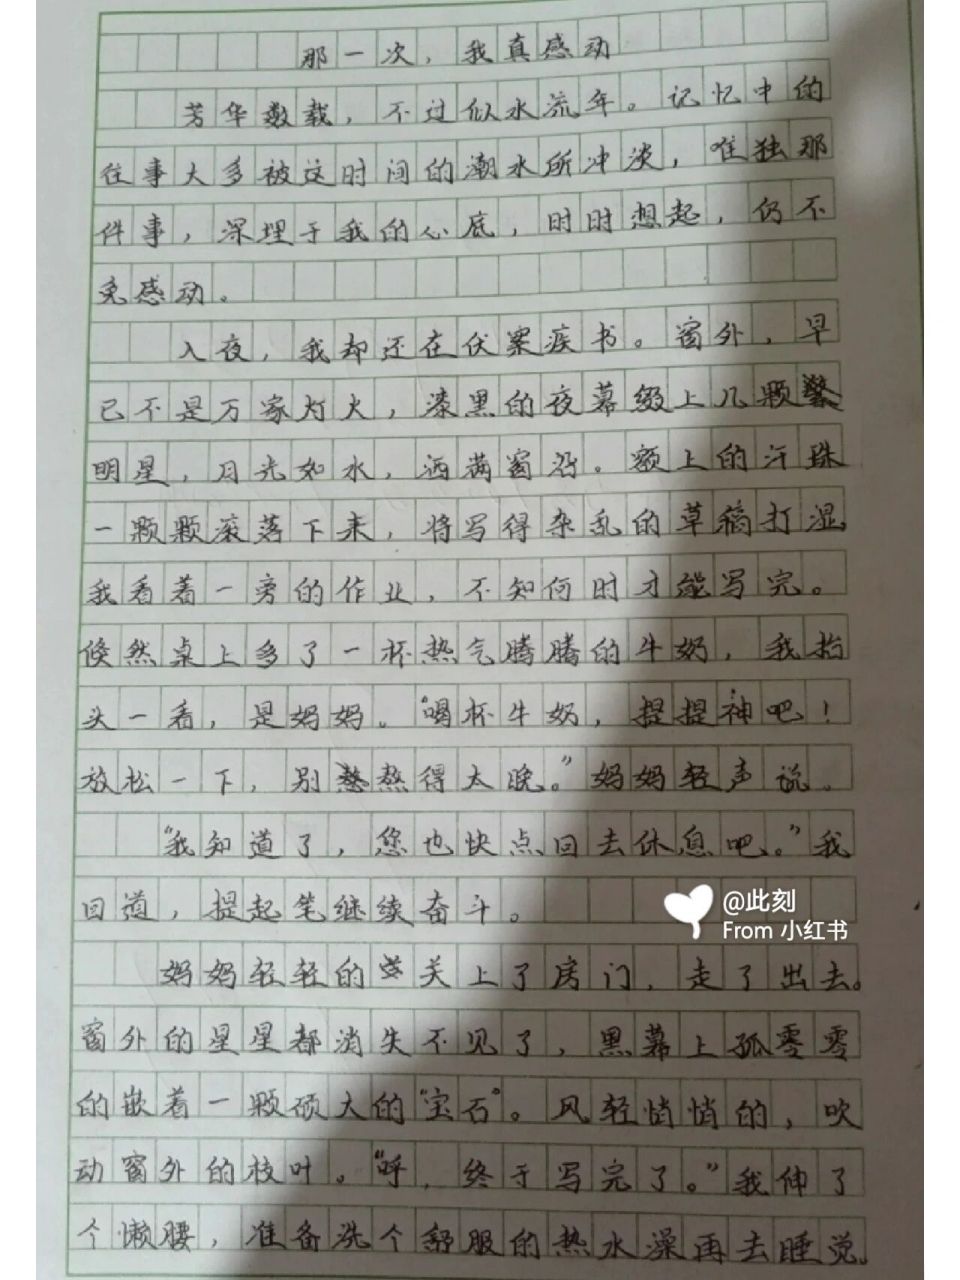 那一次，我真感动
芳华数载，不过似水流年。记忆中的
往事大多被这时间的潮水所冲淡，唯独那
件事，深埋于我的心底，时时想起，仍不
免感动。
入夜，我却还在伏案疾书。窗外，早
已不是万家灯火，漆黑的夜幕缀上几颗
明星，月光如水，洒满窗沿。额上的汗珠
一颗颗滚落下来，将写得杂乱的草稿打湿
我看着一旁的作业，不知何时才能写完。
倏然桌上多了一杯热气腾腾的牛奶，我抬
头一看，是妈妈。“喝杯牛奶，提提神吧！
放松一下，别熬得太晚。”妈妈轻声说。
“我知道了，您也快点回去休息吧。”我
回道，提起笔继续奋斗。
@此刻
From 小红书
妈妈轻轻的关上了房门，走了出去。
窗外的星星都消失不见了，黑幕上孤零零
的嵌着一颗硕大的“宝石”。风轻悄悄的，吹
动窗外的枝叶。“呼，终于写完了。”我伸了
个懒腰，准备洗个舒服的热水澡再去睡觉。